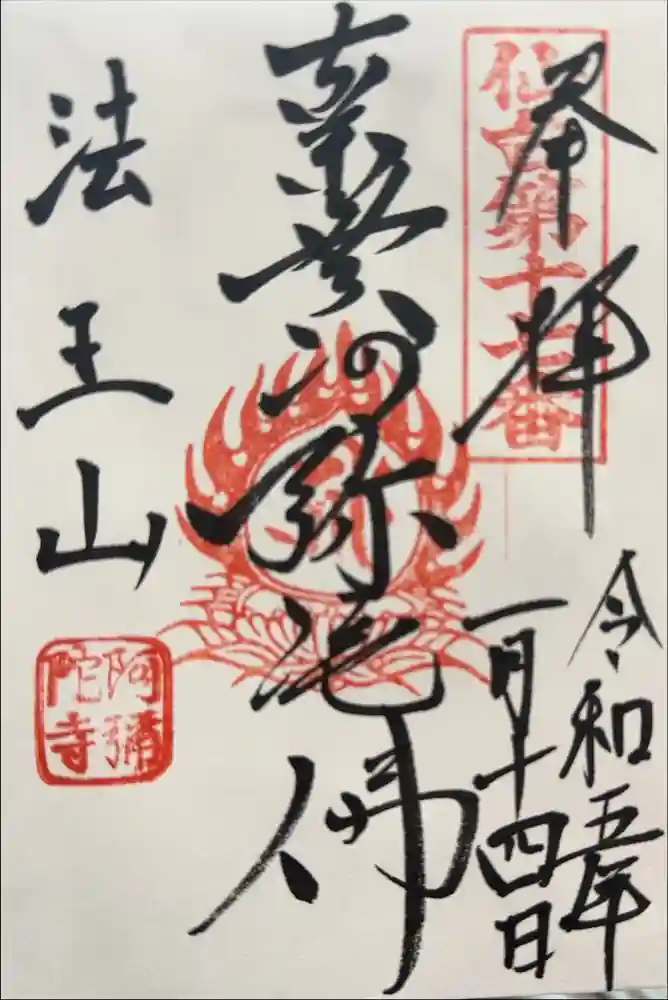 奉拝
仙台第十七番
令和五年
一月十四日
南無阿弥陀佛
法王山
阿彌
陀寺